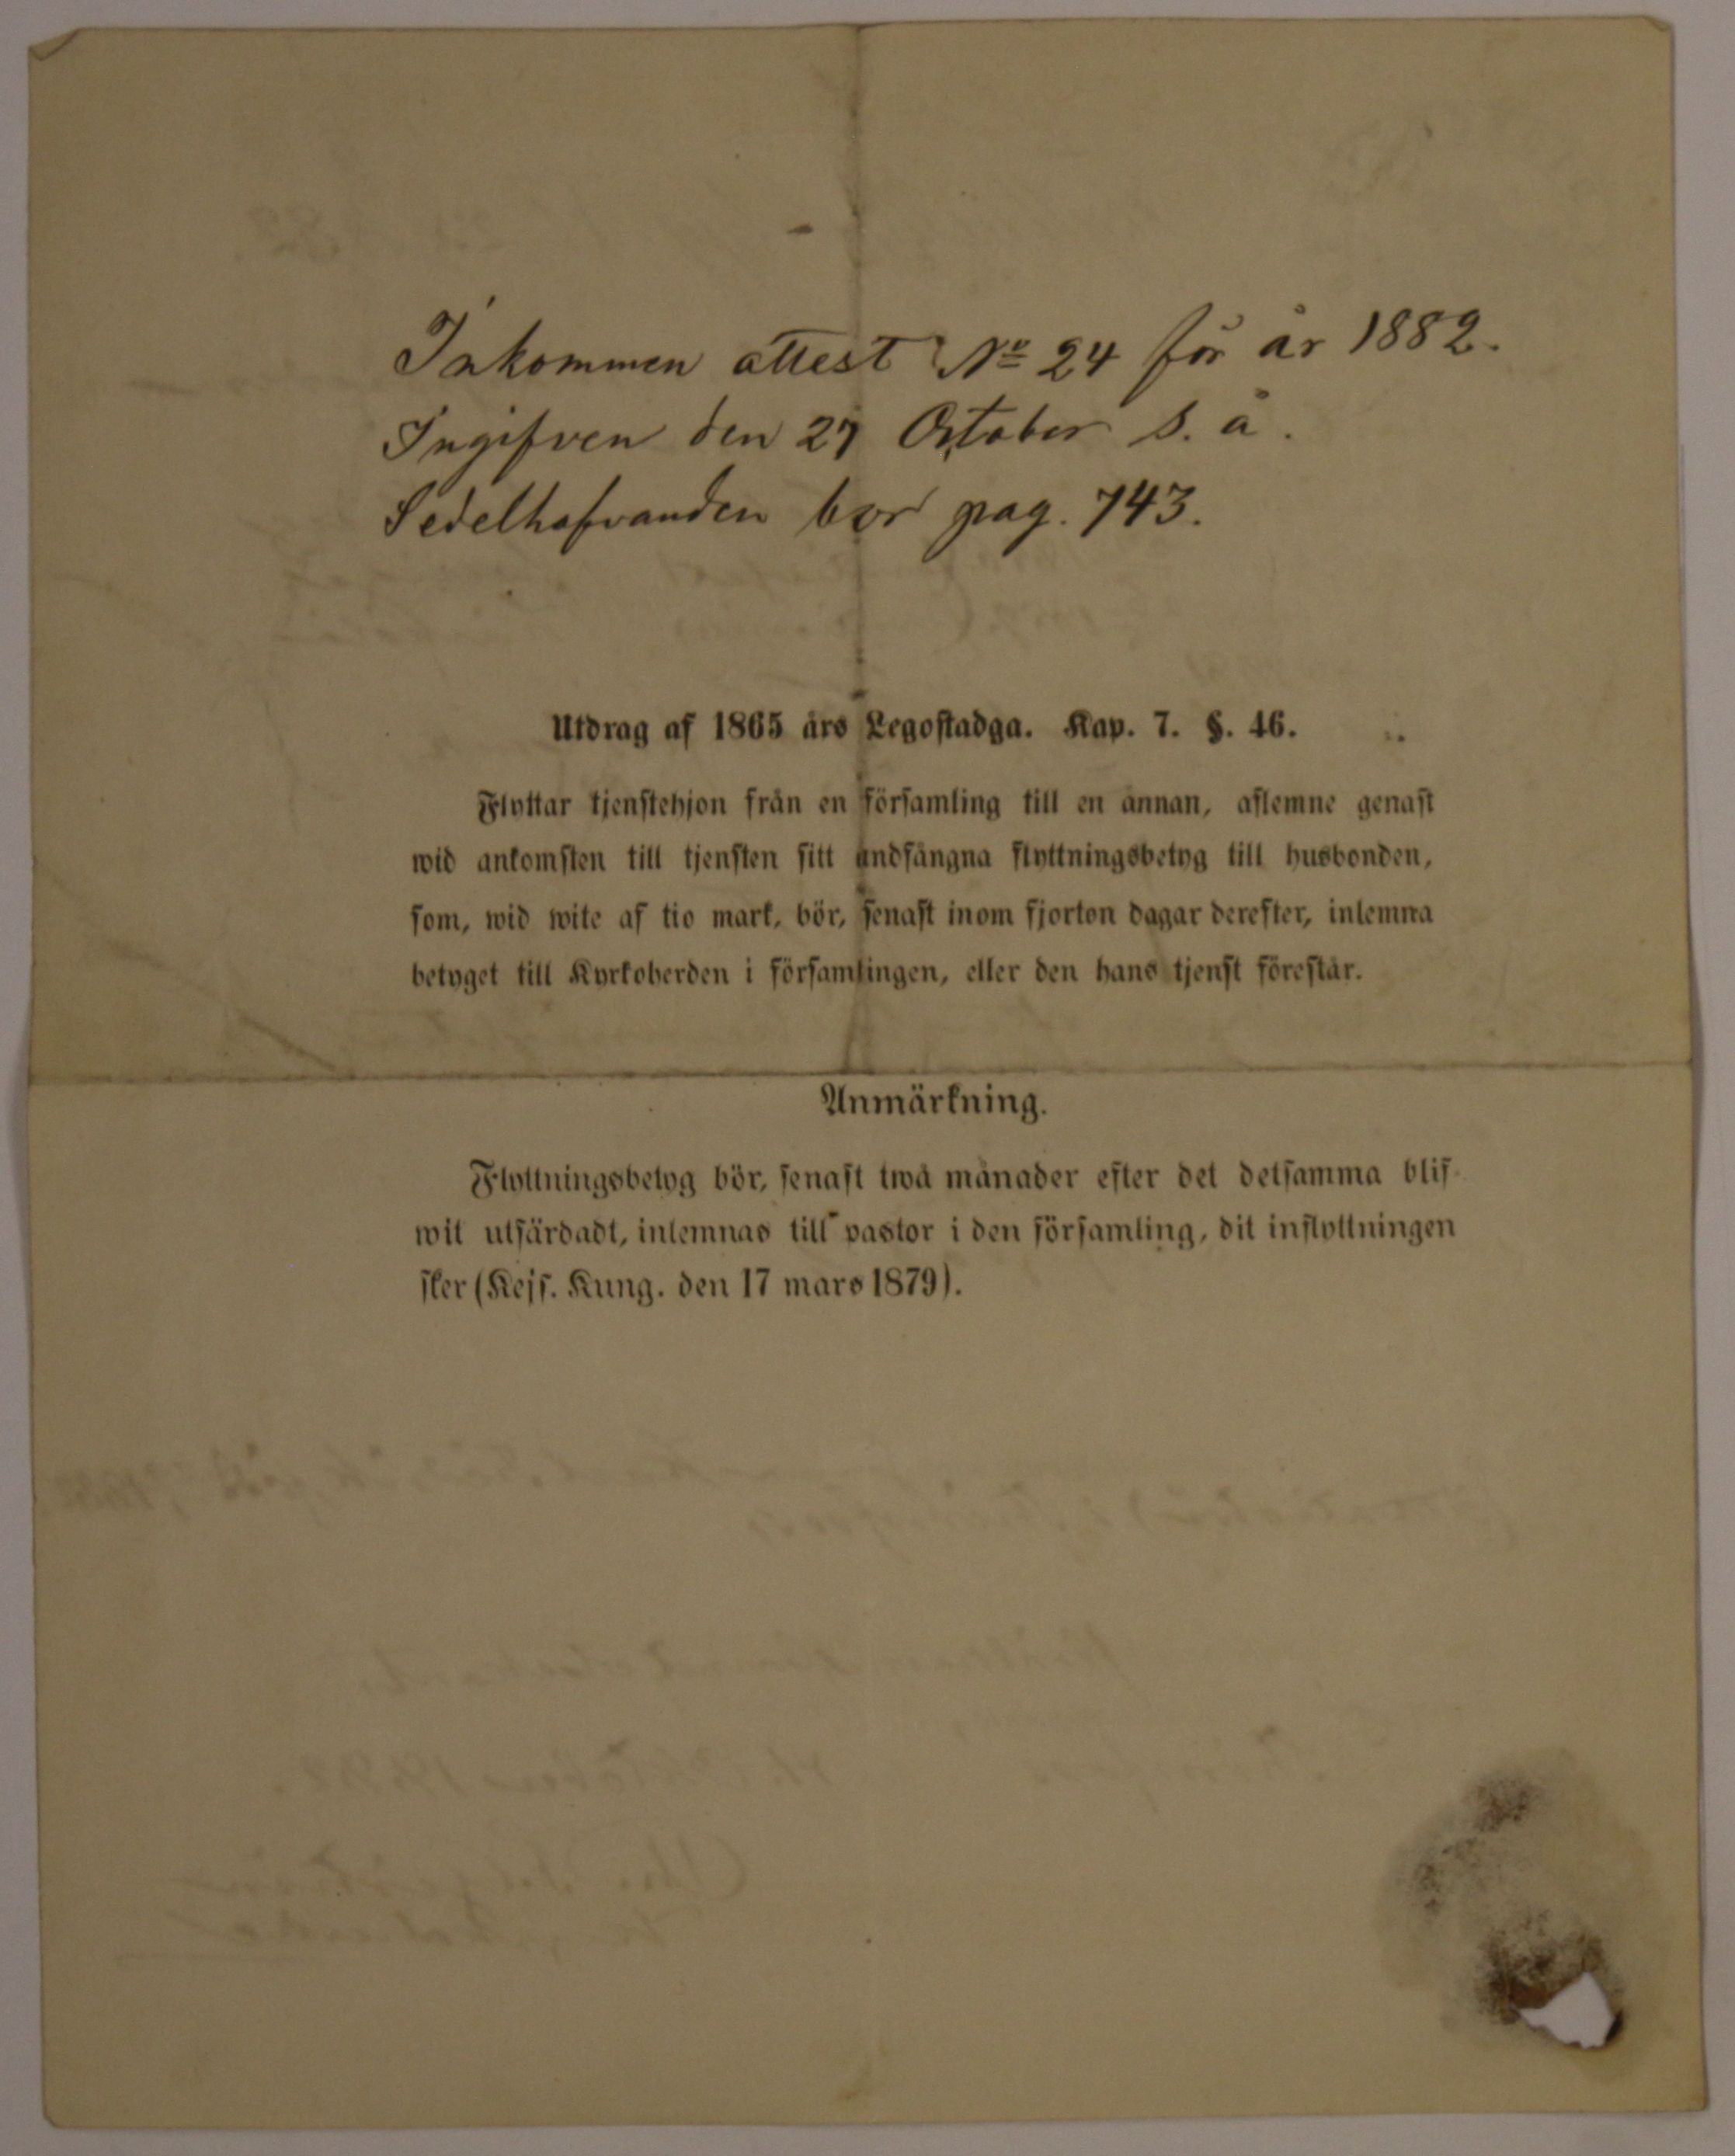 Inkommen attest No 24 för år 1882.
Ingifven den 27 October s. å.
Sedelhafvanden bor pag. 743.
Utdrag af 1865 års Legostadga. Kap. 7. §. 46.
Flyttar tjenstehjon från en församling till en annan, aflemne genast
wid ankomsten till tjensten sitt undfångna flyttningsbetyg till husbonden,
som, wid wite af tio mark, bör, senast inom fjorton dagar derefter, inlemna
betyget till Kyrkoherden i församlingen, eller den hans tjenst förestår.
Anmärkning.
Flyttningsbetyg bör, senast twå månader efter det detsamma blif-
wit utfärdadt, inlemnas till pastor i den församling, dit inflyttningen
sker (Kejs. Kung. den 17 mars 1879).